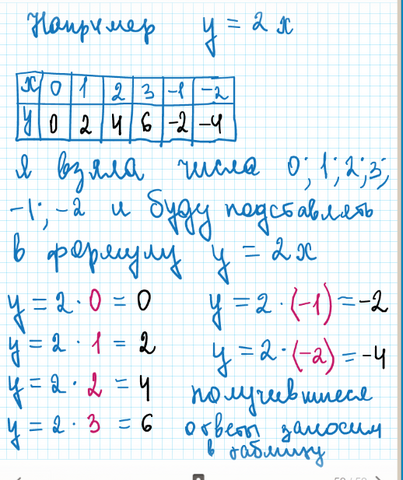 Например y = 2x
x 0 1 2 3 -1 -2
y 0 2 4 6 -2 -4
Я взяла числа 0; 1; 2; 3;
-1; -2 и буду подставлять
в формулу y = 2x
y = 2 · 0 = 0
y = 2 · 1 = 2
y = 2 · 2 = 4
y = 2 · 3 = 6
y = 2 · (-1) = -2
y = 2 · (-2) = -4
получившиеся
ответы заносим
в таблицу